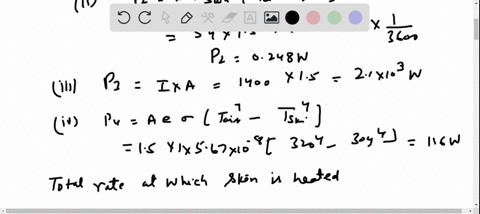 = 54 × 1.5 × 1/3600
P2 = 0.248 W
(iii) P3 = I × A = 1400 × 1.5 = 2.1 × 10³ W
(iv) P4 = A e σ [ Tair⁴ − Tskin⁴ ]
= 1.5 × 1 × 5.67 × 10⁻⁸ [ 320⁴ − 309⁴ ] = 116 W
Total rate at which skin is heated